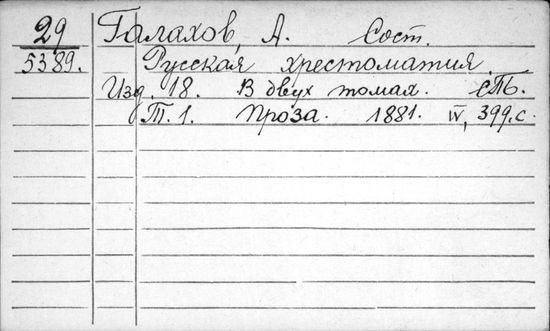 29 Галахов, А. Сост.
5389. Русская хрестоматия
Изд. 18. В двух томах. СПБ.
Т. 1. Проза. 1881. IV, 399.с.